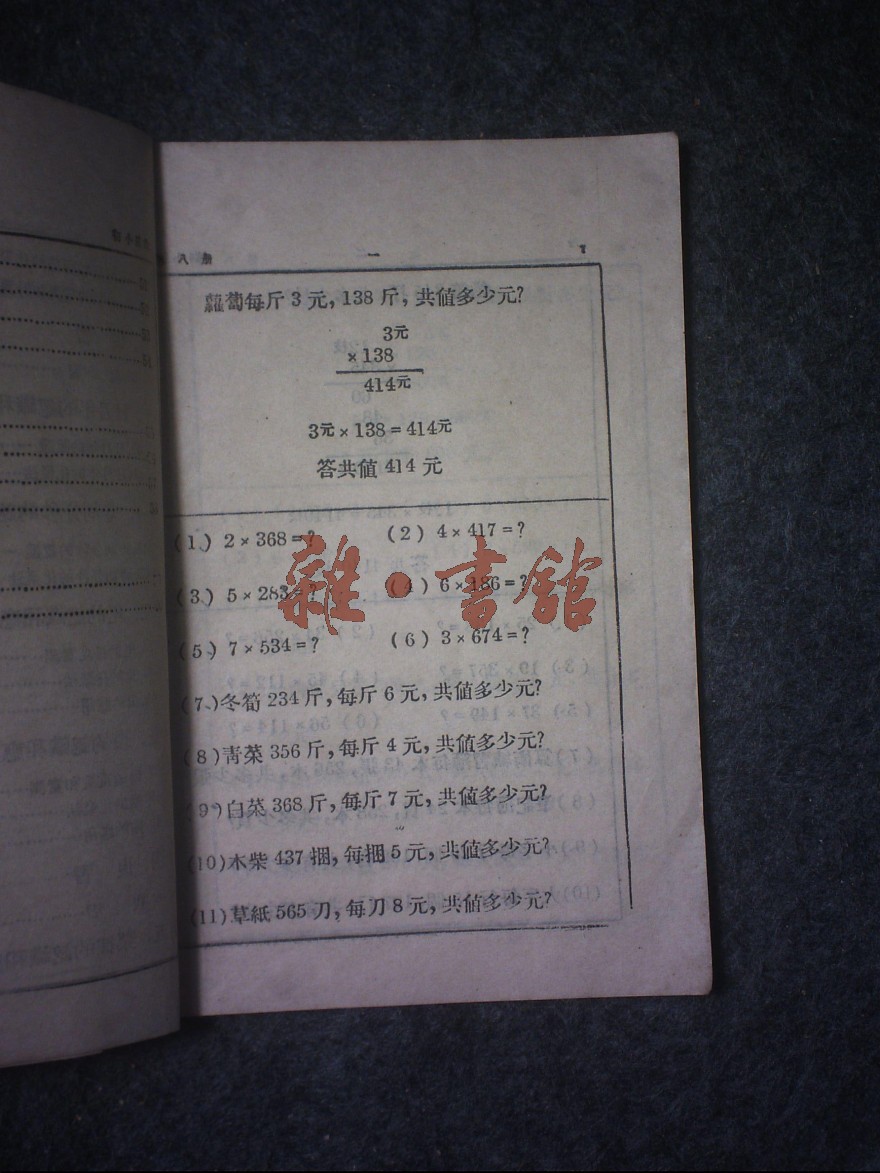 八册 一 1
蘿蔔每斤3元，138斤，共値多少元？
3元
×138
414元
3元×138=414元
答共値414元
(1) 2×368=? (2) 4×417=?
(3) 5×283=? (4) 6×186=?
(5) 7×534=? (6) 3×674=?
(7)冬筍234斤，每斤6元，共値多少元？
(8)靑菜356斤，每斤4元，共値多少元？
(9)白菜368斤，每斤7元，共値多少元？
(10)木柴437捆，每捆5元，共値多少元？
(11)草紙565刀，每刀8元，共値多少元？
雜·書館